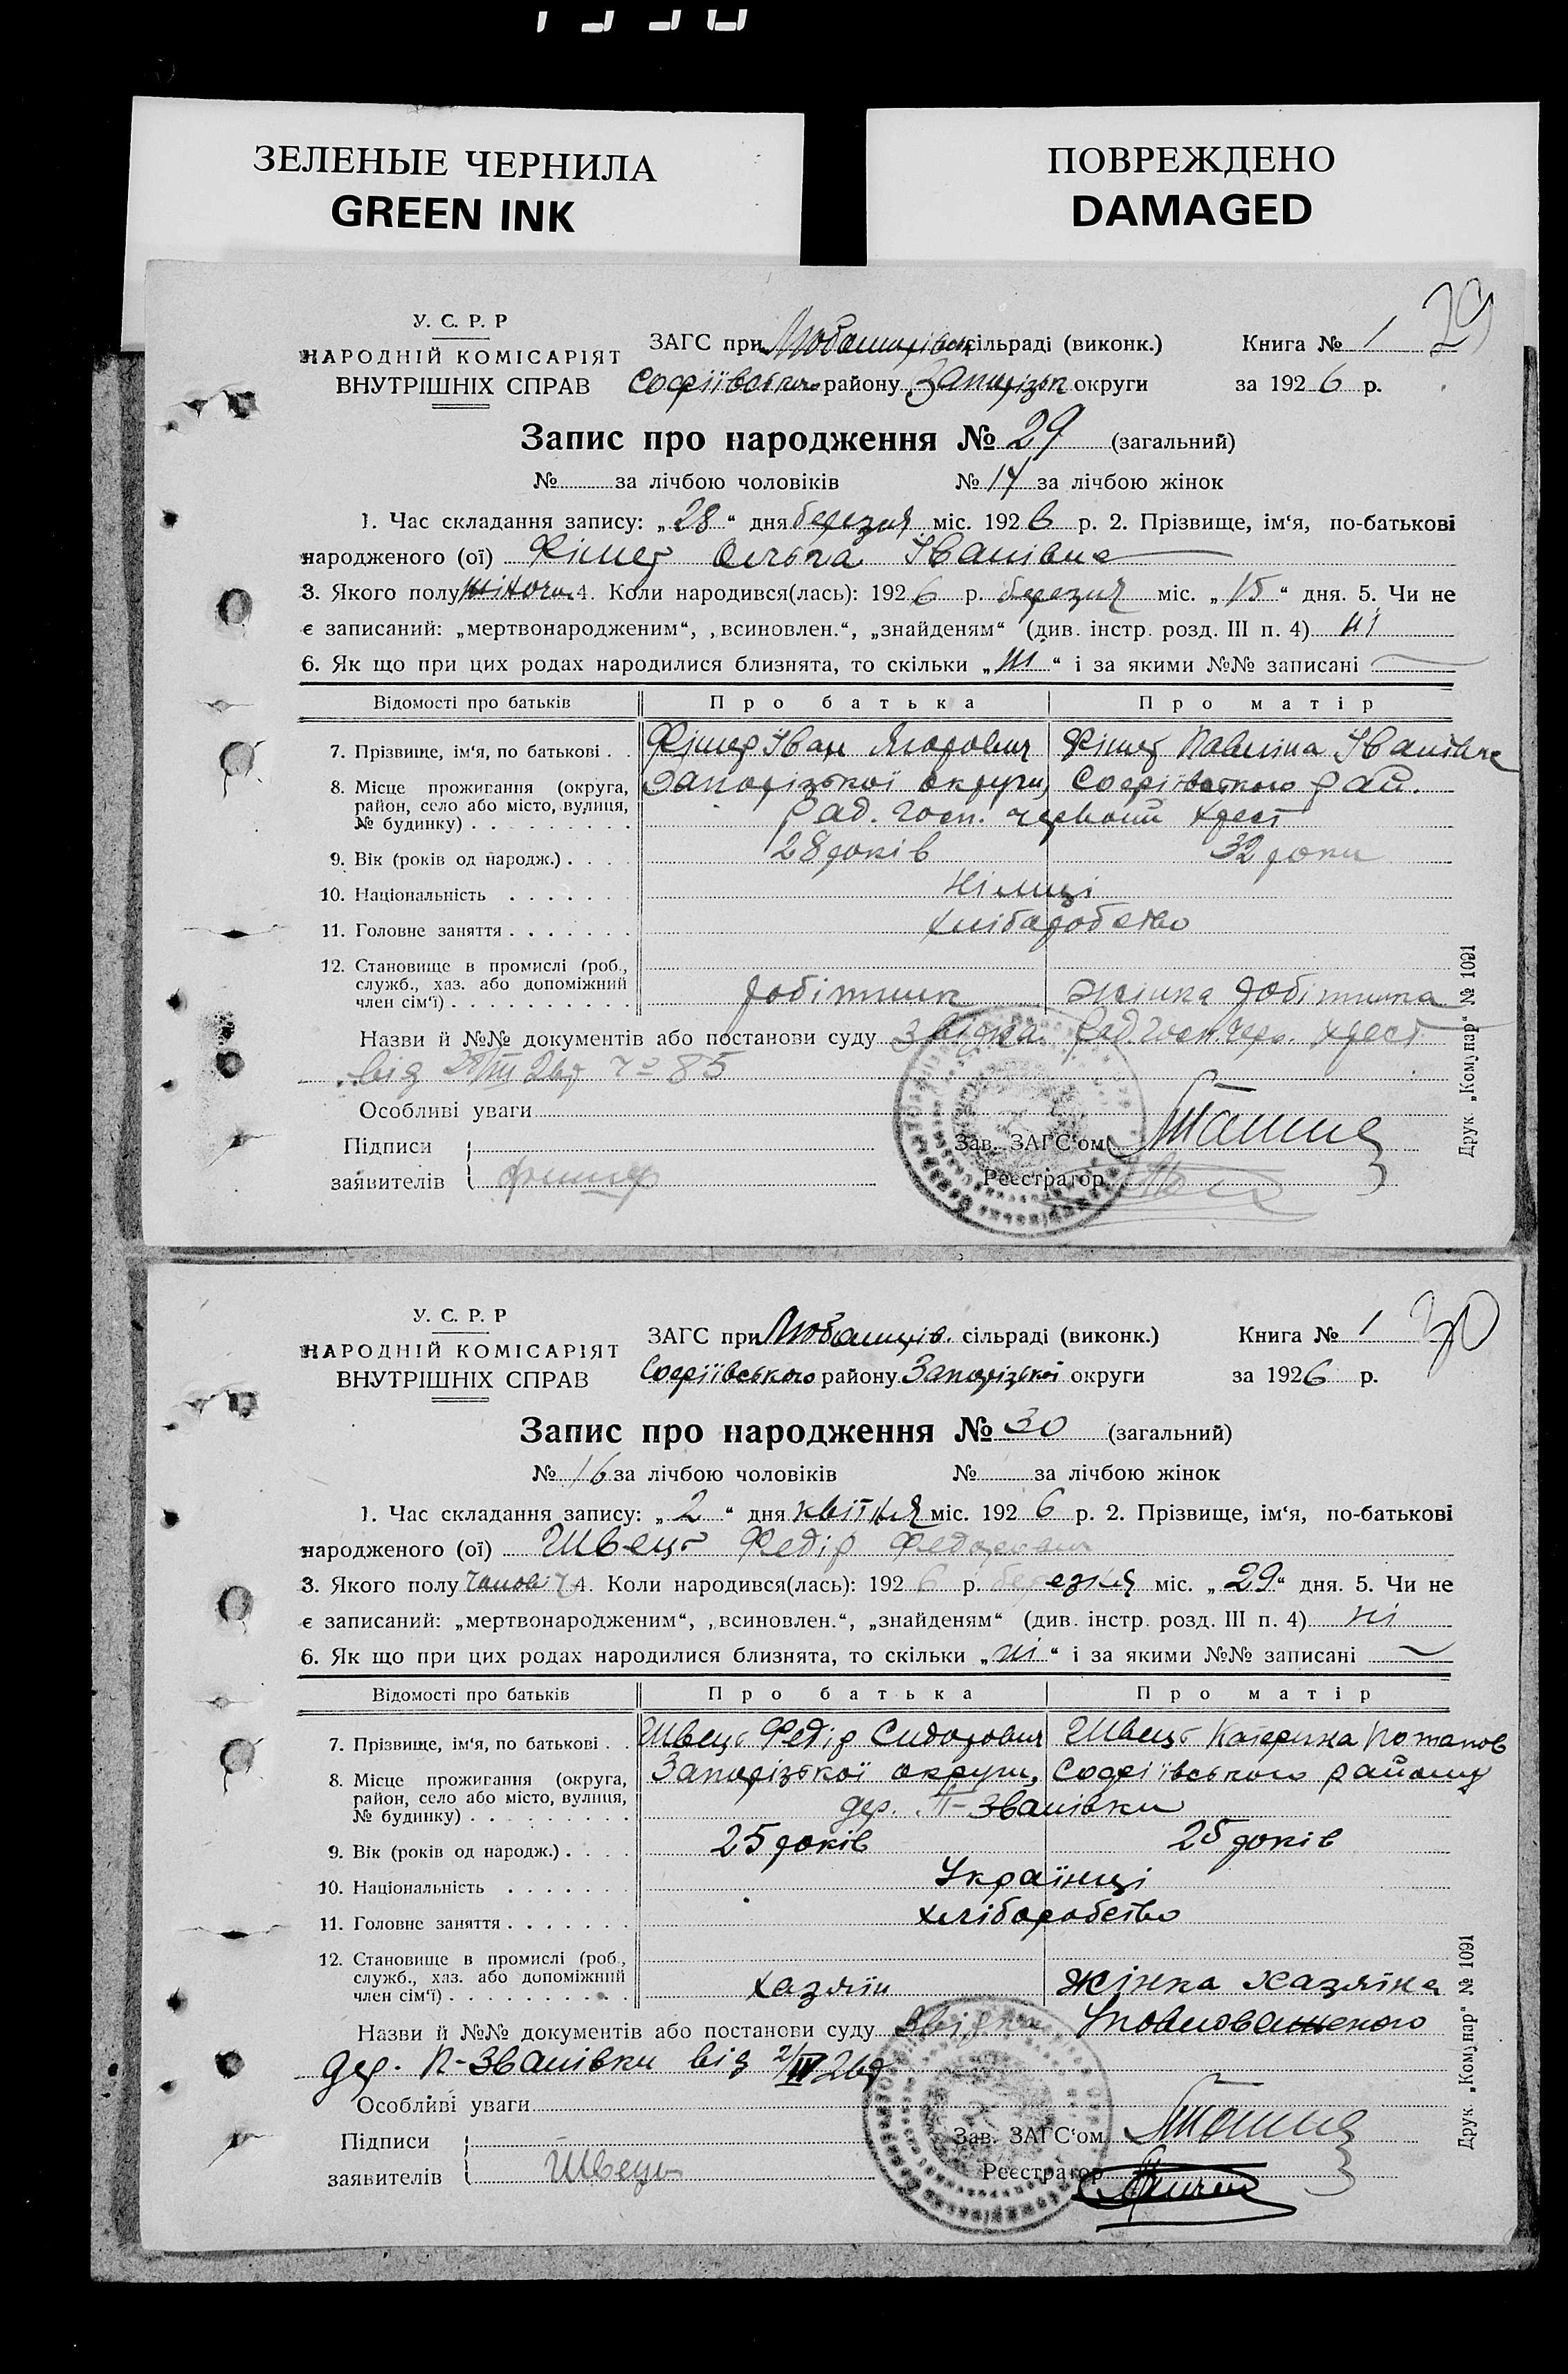 ЗЕЛЕНЫЕ ЧЕРНИЛА
GREEN INK
ПОВРЕЖДЕНО
DAMAGED
29
У. С. Р. Р
НАРОДНІЙ КОМІСАРІЯТ
ВНУТРІШНІХ СПРАВ
ЗАГС при сільраді (виконк.)
Софіївського району Запорізьк округи
Книга № 1
за 1926 р.
Запис про народження № 29 (загальний)
№ за лічбою чоловіків № 14 за лічбою жінок
1. Час складання запису: „28“ дня березня міс. 1926 р. 2. Прізвище, ім‘я, по-батькові
народженого (ої) Фішер Ольга Іванівна
3. Якого полу жіноч. 4. Коли народився(лась): 1926 р. березня міс. „15“ дня. 5. Чи не
є записаний: „мертвонародженим“, „всиновлен.“, „знайденям“ (див. інстр. розд. III п. 4) ні
6. Як що при цих родах народилися близнята, то скільки „ні“ і за якими №№ записані
Відомості про батьків Про батька Про матір
7. Прізвище, ім‘я, по батькові . . Фішер Іван Ягорович Фішер Павлина Іванівна
8. Місце проживання (округа, район, село або місто, вулиця, № будинку) Запорізької округи, Софіївського рай.
Рад. госп. червоний хрест
9. Вік (років од народж.) . . . . 28 років 32 роки
10. Національність . . . . . . . німці
11. Головне заняття . . . . . . . хліборобство
12. Становище в промислі (роб., служб., хаз. або допоміжний член сім‘ї) . . . . . . . . . . робітник жінка робітника
Назви й №№ документів або постанови суду звідка Рад. госп. черв. хрест
від 28/III 26р № 85
Особливі уваги
Підписи
заявителів Фишер
Зав. ЗАГС‘ом
Реєстратор
Друк. „Комунар“ № 1091
30
У. С. Р. Р
НАРОДНІЙ КОМІСАРІЯТ
ВНУТРІШНІХ СПРАВ
ЗАГС при сільраді (виконк.)
Софіївського району Запорізької округи
Книга № 1
за 1926 р.
Запис про народження № 30 (загальний)
№ 16 за лічбою чоловіків № за лічбою жінок
1. Час складання запису: „2“ дня квітня міс. 1926 р. 2. Прізвище, ім‘я, по-батькові
народженого (ої) Швець Федір Федорович
3. Якого полу чолов 4. Коли народився(лась): 1926 р. березня міс. „29“ дня. 5. Чи не
є записаний: „мертвонародженим“, „всиновлен.“, „знайденям“ (див. інстр. розд. III п. 4) ні
6. Як що при цих родах народилися близнята, то скільки „ні“ і за якими №№ записані
Відомості про батьків Про батька Про матір
7. Прізвище, ім‘я, по батькові . . Швець Федір Сидорович Швець Катерина Потапов
8. Місце проживання (округа, район, село або місто, вулиця, № будинку) Запорізької округи, Софіївського району
дер. П-Званівки
9. Вік (років од народж.) . . . . 25 років 25 років
10. Національність . . . . . . . Українці
11. Головне заняття . . . . . . . хліборобство
12. Становище в промислі (роб., служб., хаз. або допоміжний член сім‘ї) . . . . . . . . . . хазяїн жінка хазяїна
Назви й №№ документів або постанови суду звідка Уповноваженого
дер. П-Званівки від 2/IV 26р
Особливі уваги
Підписи
заявителів Швець
Зав. ЗАГС‘ом
Реєстратор
Друк. „Комунар“ № 1091